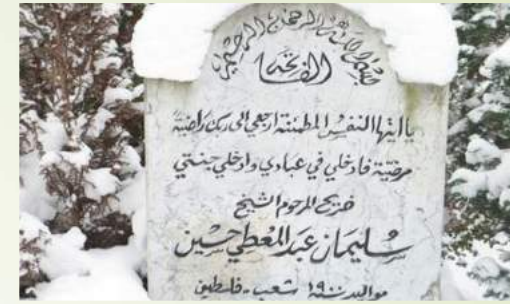 بسم الله الرحمن الرحيم
الفاتحة
يا ايتها النفس المطمئنة ارجعي الى ربك راضية
مرضية فادخلي في عبادي وادخلي جنتي
ضريح المرحوم الشيخ
سليمان عبد المعطي حسين
مواليد سنة ١٩٠٠ شعب - فلسطين